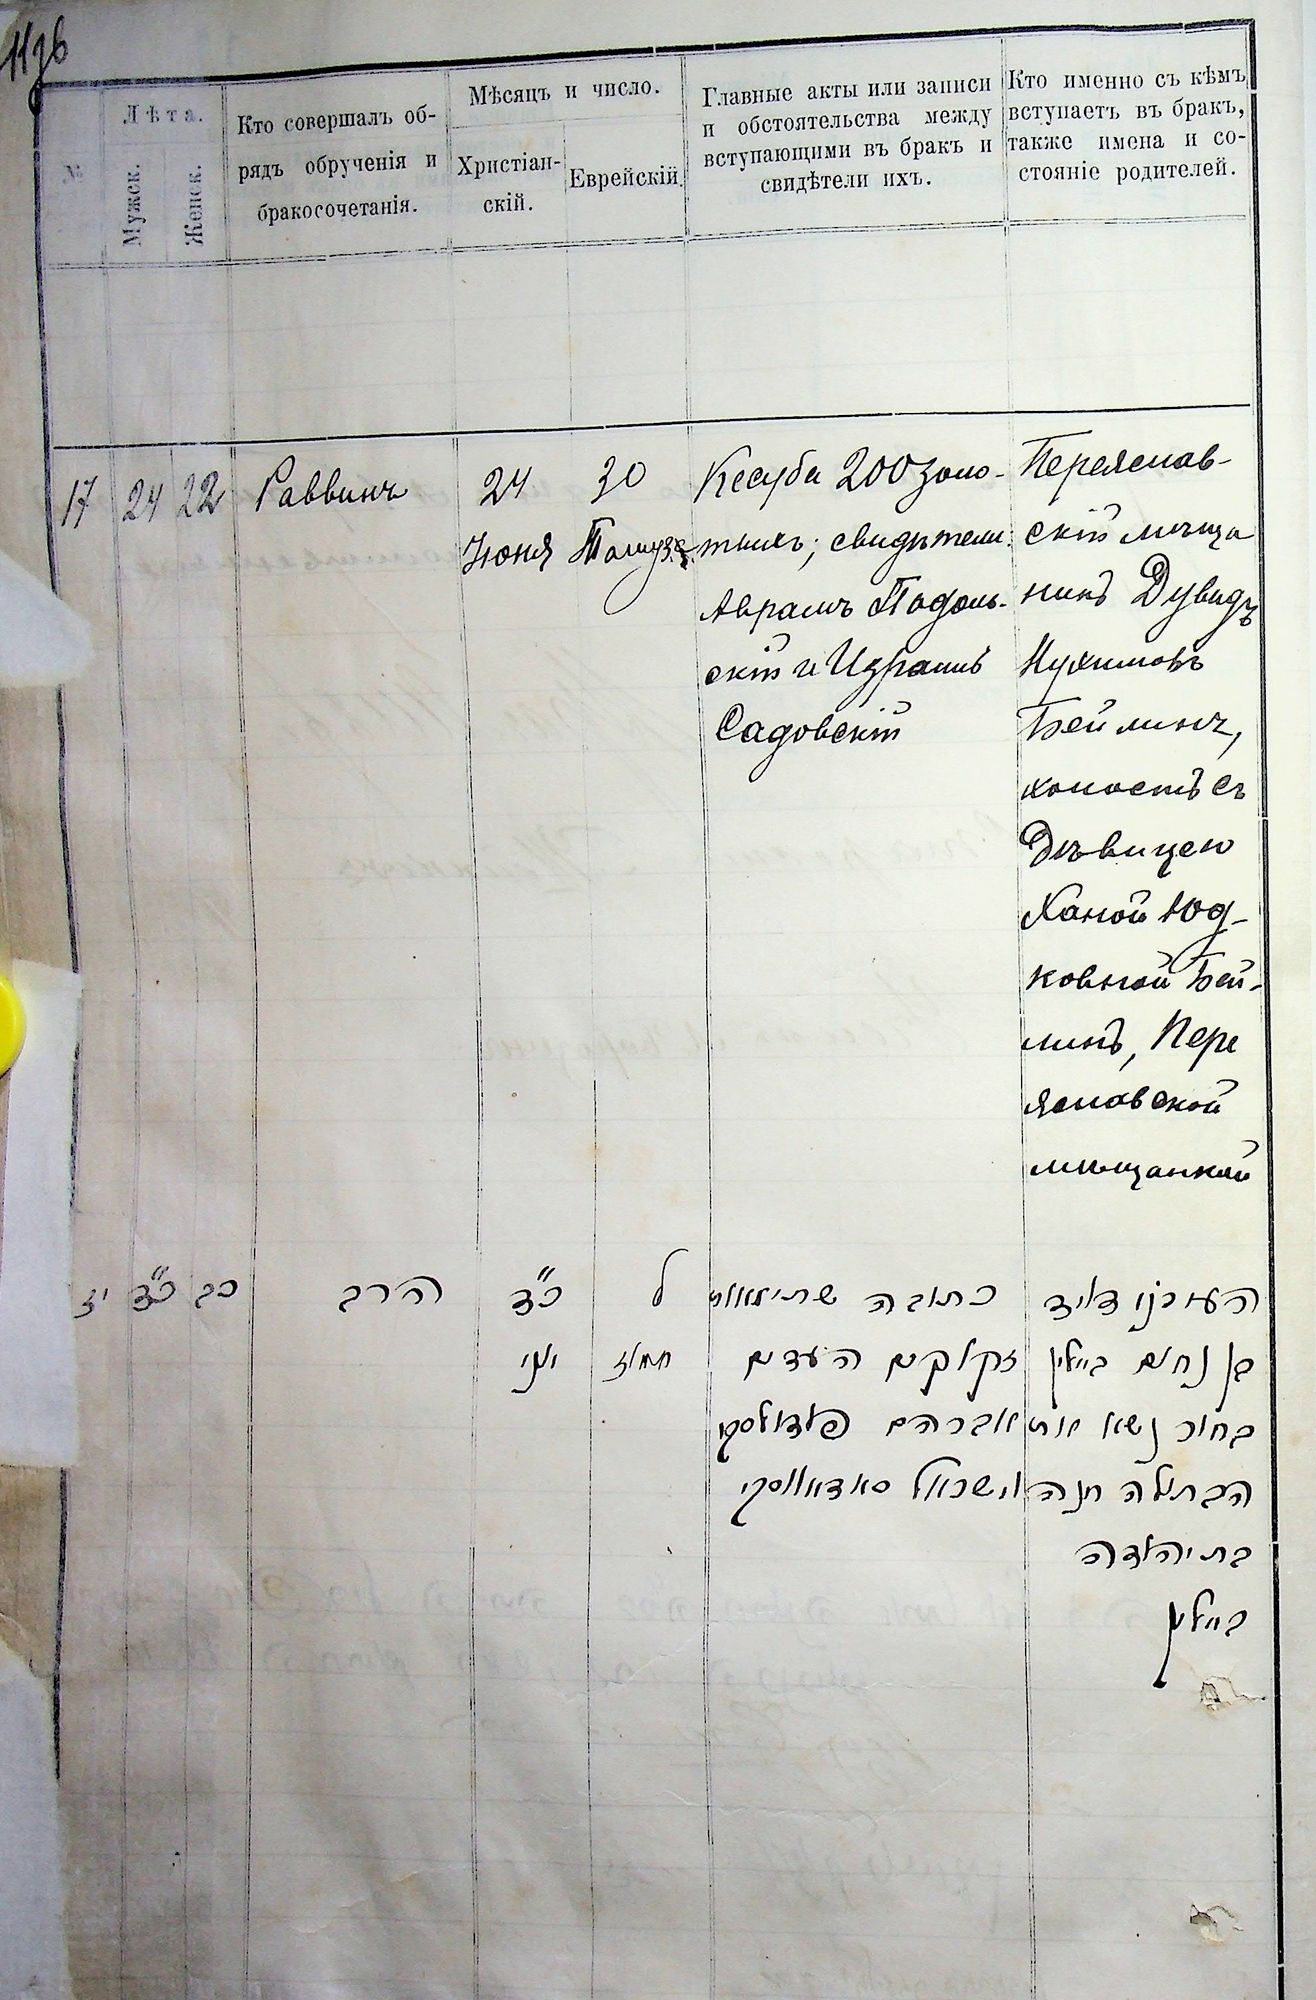 №
Лѣта.
Мужск.
Женск.
Кто совершалъ об-
рядъ обрученія и
бракосочетанія.
Мѣсяцъ и число.
Христіан-
скій.
Еврейскій.
Главные акты или записи
и обстоятельства между
вступающими въ бракъ и
свидѣтели ихъ.
Кто именно съ кѣмъ
вступаетъ въ бракъ,
также имена и со-
стояніе родителей.
17
24
22
Раввинъ
24
Июня
30
Тамуза
Кесуба 200 золо-
тыхъ; свидѣтели:
Аврамъ Подоль-
скій и Израиль
Садовскій
Переяслав-
скій мѣща
нинъ Дувидъ
Нухимовъ
Бейлинъ,
холостъ съ
Дѣвицею
Ханой Юд-
ковной Бей-
линъ, Пере
яславской
мѣщанкой
יז
כ"ד
כב
הרב
כ"ד
יוני
ל
תמוז
כתובה שתי מאות
זקוקים העדים
אברהם פאדאלסקי
וישראל סאדאווסקי
דויד
בן נחום ביילין
בחור נשא את
הבתולה חנה
בת יהודה
ביילין